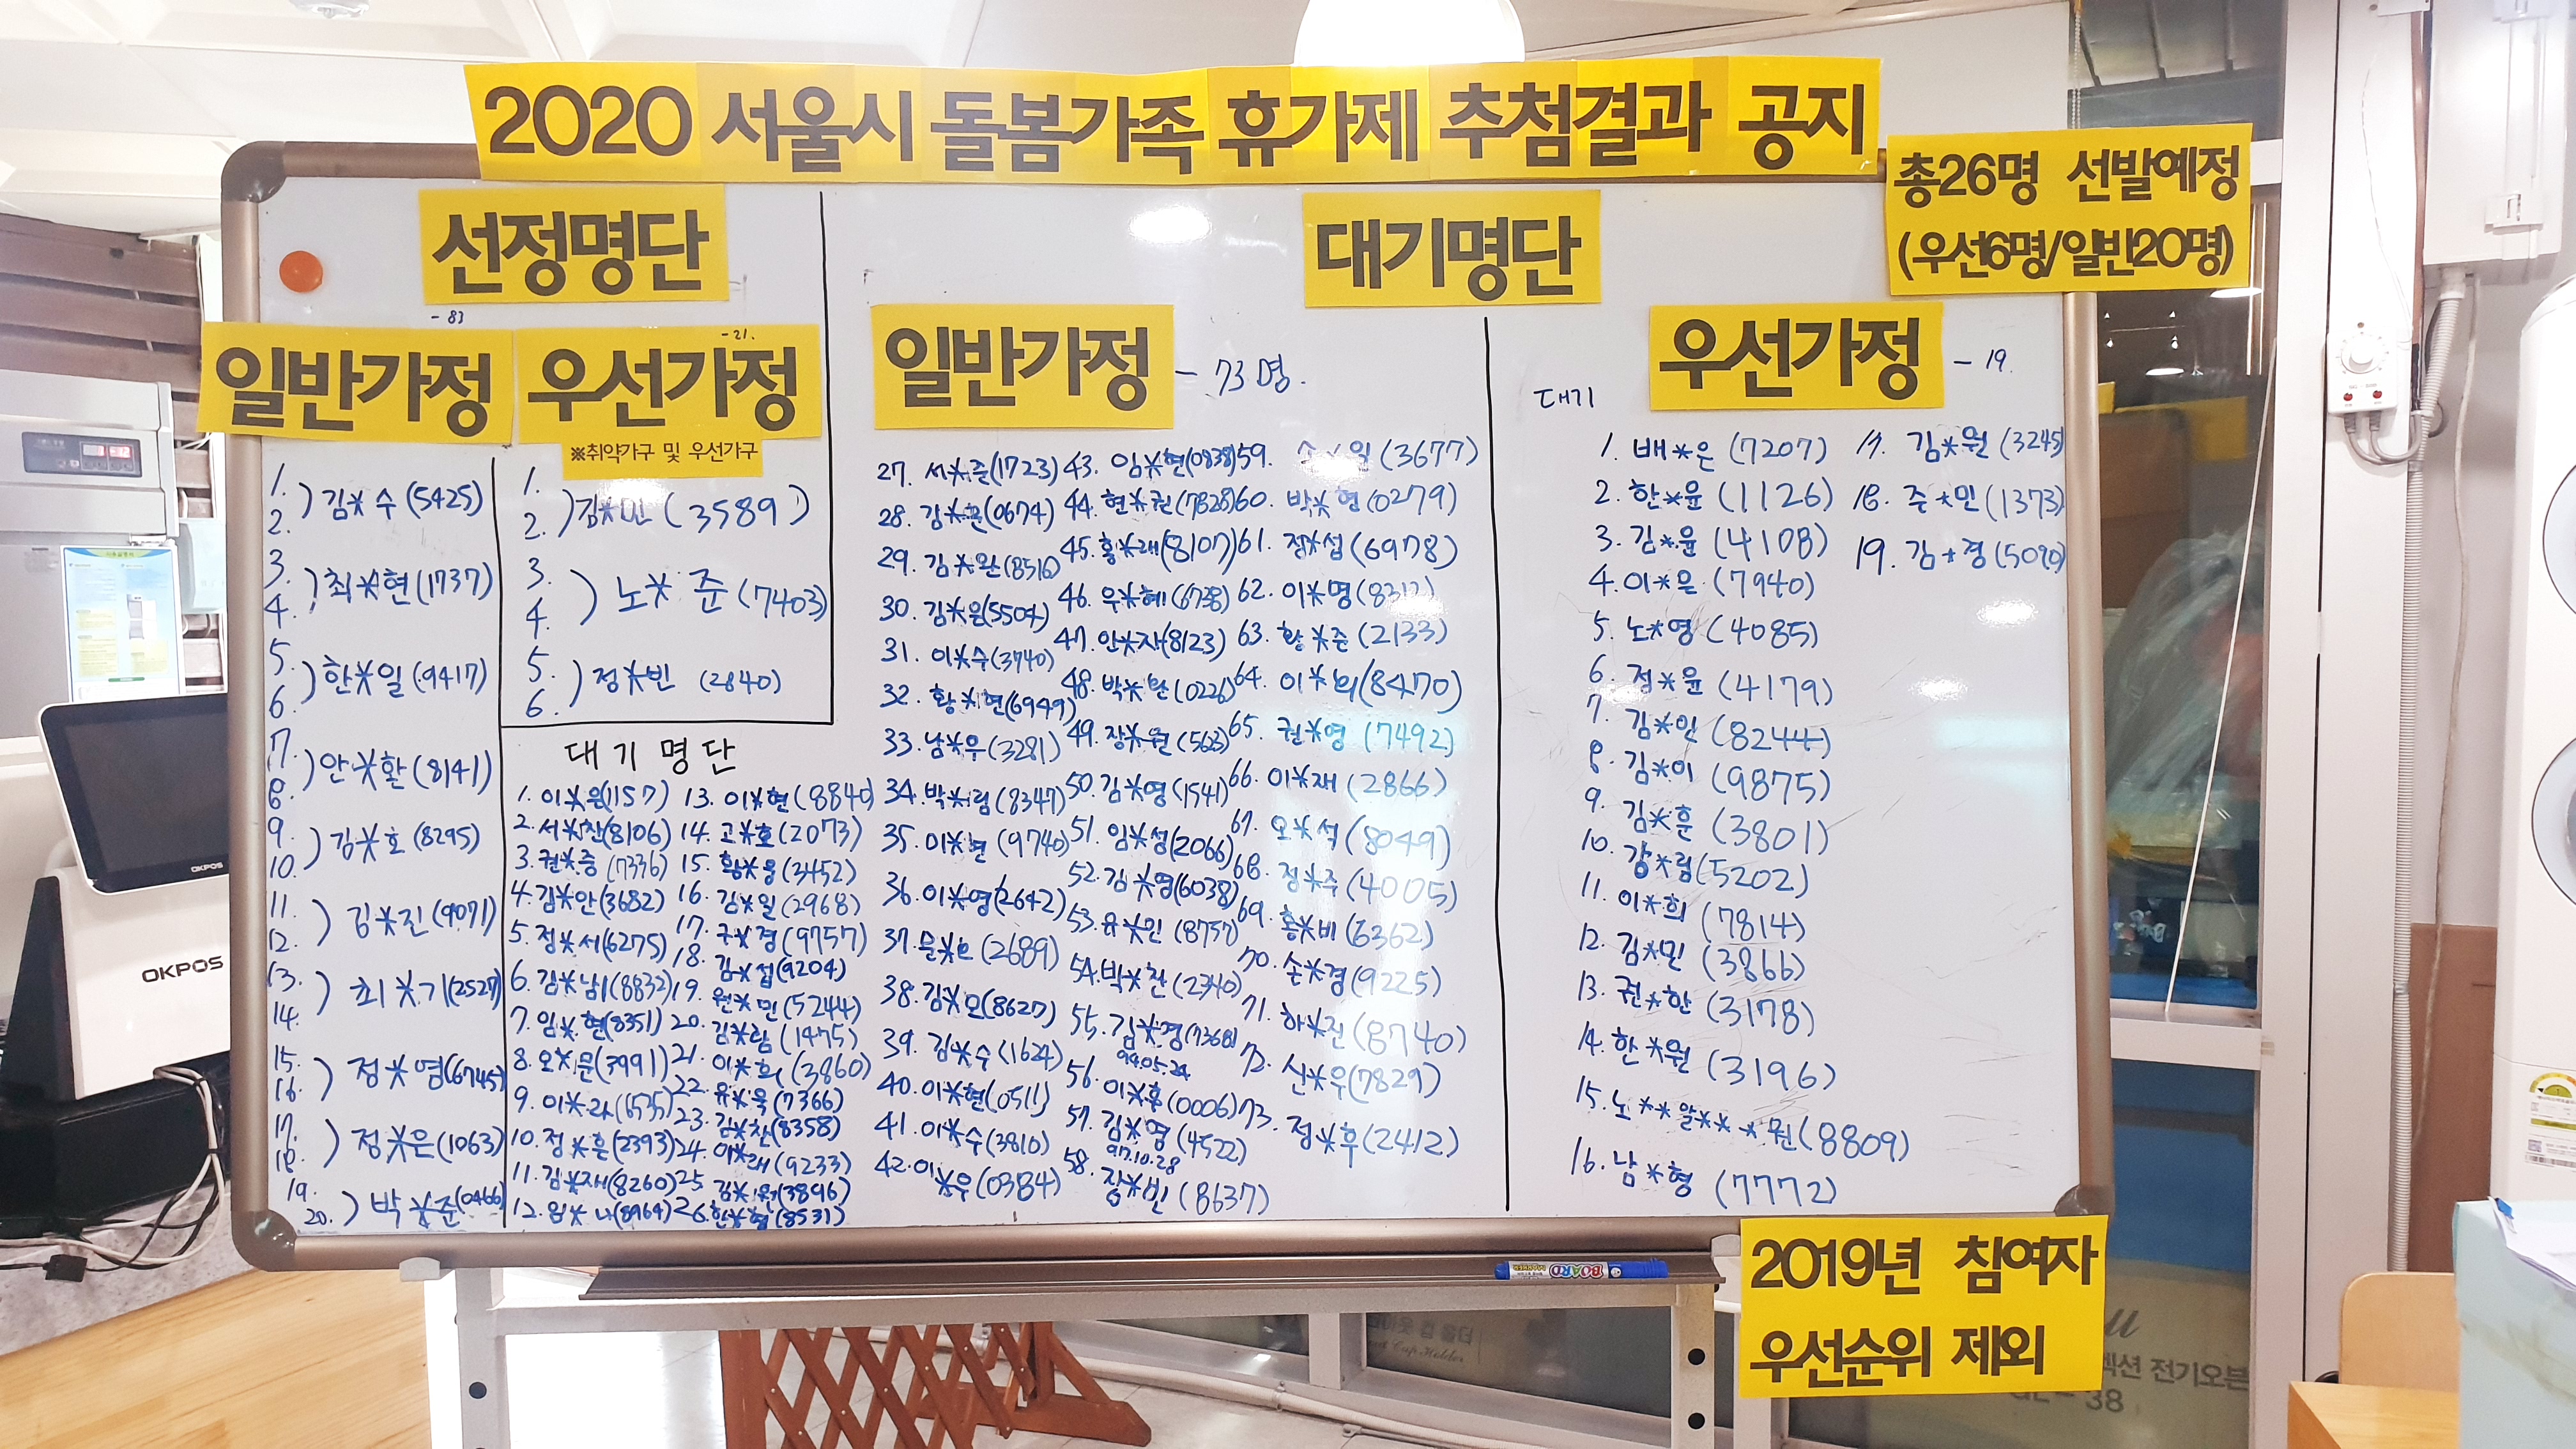 2020 서울시 돌봄가족 휴가제 추첨결과 공지
총26명 선발예정
(우선6명/일반20명)
선정명단
- 83
일반가정
1.
2.
) 김*수 (5425)
3.
4.
) 최*현 (1737)
5.
6.
) 한*일 (9417)
7.
8.
) 안*환 (8141)
9.
10.
) 김*호 (8295)
11.
12.
) 김*진 (9071)
13.
14.
) 최*기 (2527)
15.
16.
) 정*염 (6745)
17.
18.
) 정*은 (1063)
19.
20.
) 박*준 (0466)
- 21.
우선가정
※취약가구 및 우선가구
1.
2.
) 김*민 (3589)
3.
4.
) 노*준 (7403)
5.
6.
) 정*빈 (2840)
대기명단
1. 이*원 (1157)
2. 서*찬 (8106)
3. 권*증 (7336)
4. 김*안 (3682)
5. 정*서 (6275)
6. 김*남 (8832)
7. 임*현 (8351)
8. 오*문 (3991)
9. 이*라 (6535)
10. 정*훈 (2393)
11. 김*재 (8260)
12. 임*나 (8964)
13. 이*현 (8840)
14. 고*호 (2073)
15. 황*웅 (3452)
16. 김*일 (2968)
17. 구*경 (9757)
18. 김*섭 (9204)
19. 원*민 (5244)
20. 김*람 (1475)
21. 이*희 (3860)
22. 유*욱 (7366)
23. 김*찬 (8358)
24. 이*래 (9233)
25. 김*원 (3896)
26. 한*협 (8531)
대기명단
일반가정 - 73명.
27. 서*준 (1723)
28. 김*훈 (0674)
29. 김*완 (8516)
30. 김*원 (5504)
31. 이*수 (3740)
32. 황*현 (6949)
33. 남*우 (3281)
34. 박*림 (8347)
35. 이*현 (9740)
36. 이*영 (2642)
37. (2689)
38. 김*오 (8627)
39. 김*수 (1624)
40. 이*현 (0511)
41. 이*수 (3810)
42. 이*우 (0384)
43. 임*현 (0838)
44. 현*권 (7828)
45. 홍*래 (8107)
46. 우*혜 (6738)
47. 안*자 (8123)
48. 박*환 (0226)
49. 장*원 (5623)
50. 김*영 (1541)
51. 임*성 (2066)
52. 김*영 (6038)
53. 유*인 (8757)
54. 박*찬 (2340)
55. 김*경 (7368)
94.05.24
56. 이*후 (0006)
57. 김*영 (4522)
97.10.28
58. 장*빈 (8637)
59. 원 (3677)
60. 박*현 (0279)
61. 정*섭 (6978)
62. 이*명 (8312)
63. 황*준 (2133)
64. 이*희 (8470)
65. 권*영 (7492)
66. 이*재 (2866)
67. 오*석 (8049)
68. 정*주 (4005)
69. 홍*비 (6362)
70. 손*경 (9225)
71. 하*진 (8740)
72. 신*우 (7829)
73. 정*후 (2412)
우선가정 - 19.
대기
1. 배*은 (7207)
2. 한*윤 (1126)
3. 김*윤 (4108)
4. 이*은 (7940)
5. 노*영 (4085)
6. 정*윤 (4179)
7. 김*인 (8244)
8. 김*이 (9875)
9. 김*훈 (3801)
10. 강*림 (5202)
11. 이*희 (7814)
12. 김*민 (3866)
13. 권*한 (3178)
14. 한*원 (3196)
15. 노**알***원 (8809)
16. 남*형 (7772)
17. 김*원 (3245)
18. 주*민 (1373)
19. 김*경 (5090)
2019년 참여자
우선순위 제외
OKPOS
OKPOS
BOARD
전기오븐
38